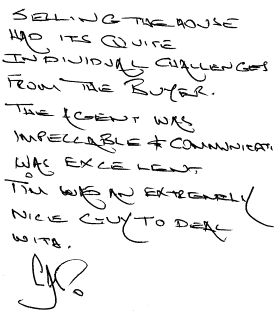 SELLING THE HOUSE
HAD ITS QUITE
INDIVIDUAL CHALLENGES
FROM THE BUYER.
THE AGENT WAS
IMPECCABLE & COMMUNICATI
WAS EXCELLENT.
TIM WAS AN EXTREMELY
NICE GUY TO DEAL
WITH.